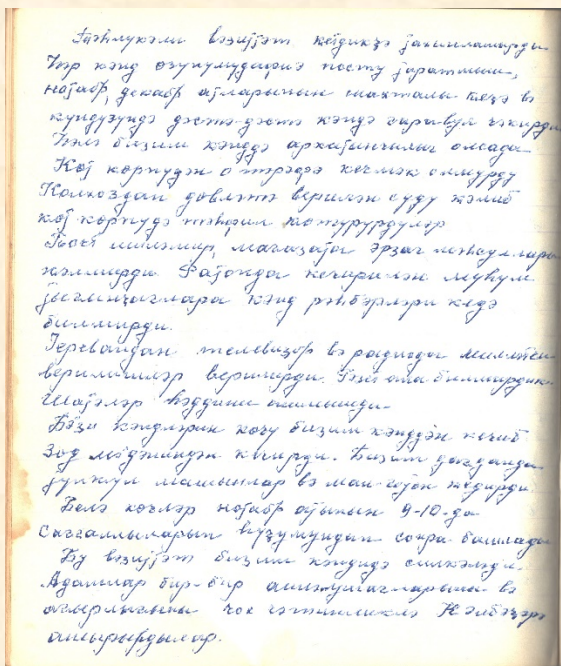 Тәһлүкәли вәзијјәт кетдикҹә јахынлашырды
Һәр кәнд өзүнүмүдафиә посту јаратмыш,
нојабр, декабр ајларынын шахталы кечә вә
күндүзүндә дәстә-дәстә кәндә гаравул чәкирди
Һәлә бизим кәнддә архајынчылыг олсада
Көј көрпүдән о тәрәфә кечмәк олмурду
Колхоздан довләтә верилән суду кәлиб
көј көрпүдә тәһвил көтүрүрдүләр
Почт ишләмир, магазаја әрзаг мәһсуллары
кәлмирди. Рајонда кечирилән мүһүм
јығынҹаглара кәнд рәһбәрләри кедә
билмирди.
Јеревандан телевизор вә радиода
верилишләр верилирди. Биз она билмирдик.
Шајәләр һәддини ашмышды.
Бә'зи кәндләрин көчү бизим кәнддән кечиб
Зод кедирди. Бизим дағданда
јүнкүл машынлар вә мал-гојун кедирди.
Белә көчләр нојабр ајынын 9-10-да
сағгаллыларын һүҹумундан сонра башлады
Бу вәзијјәт бизим кәндидә силкәләди.
Адамлар бир-бир аилә ушагларыны вә
ағырлығыны чох чәтинликлә Кәлбәҹәрә
ашырырдылар.